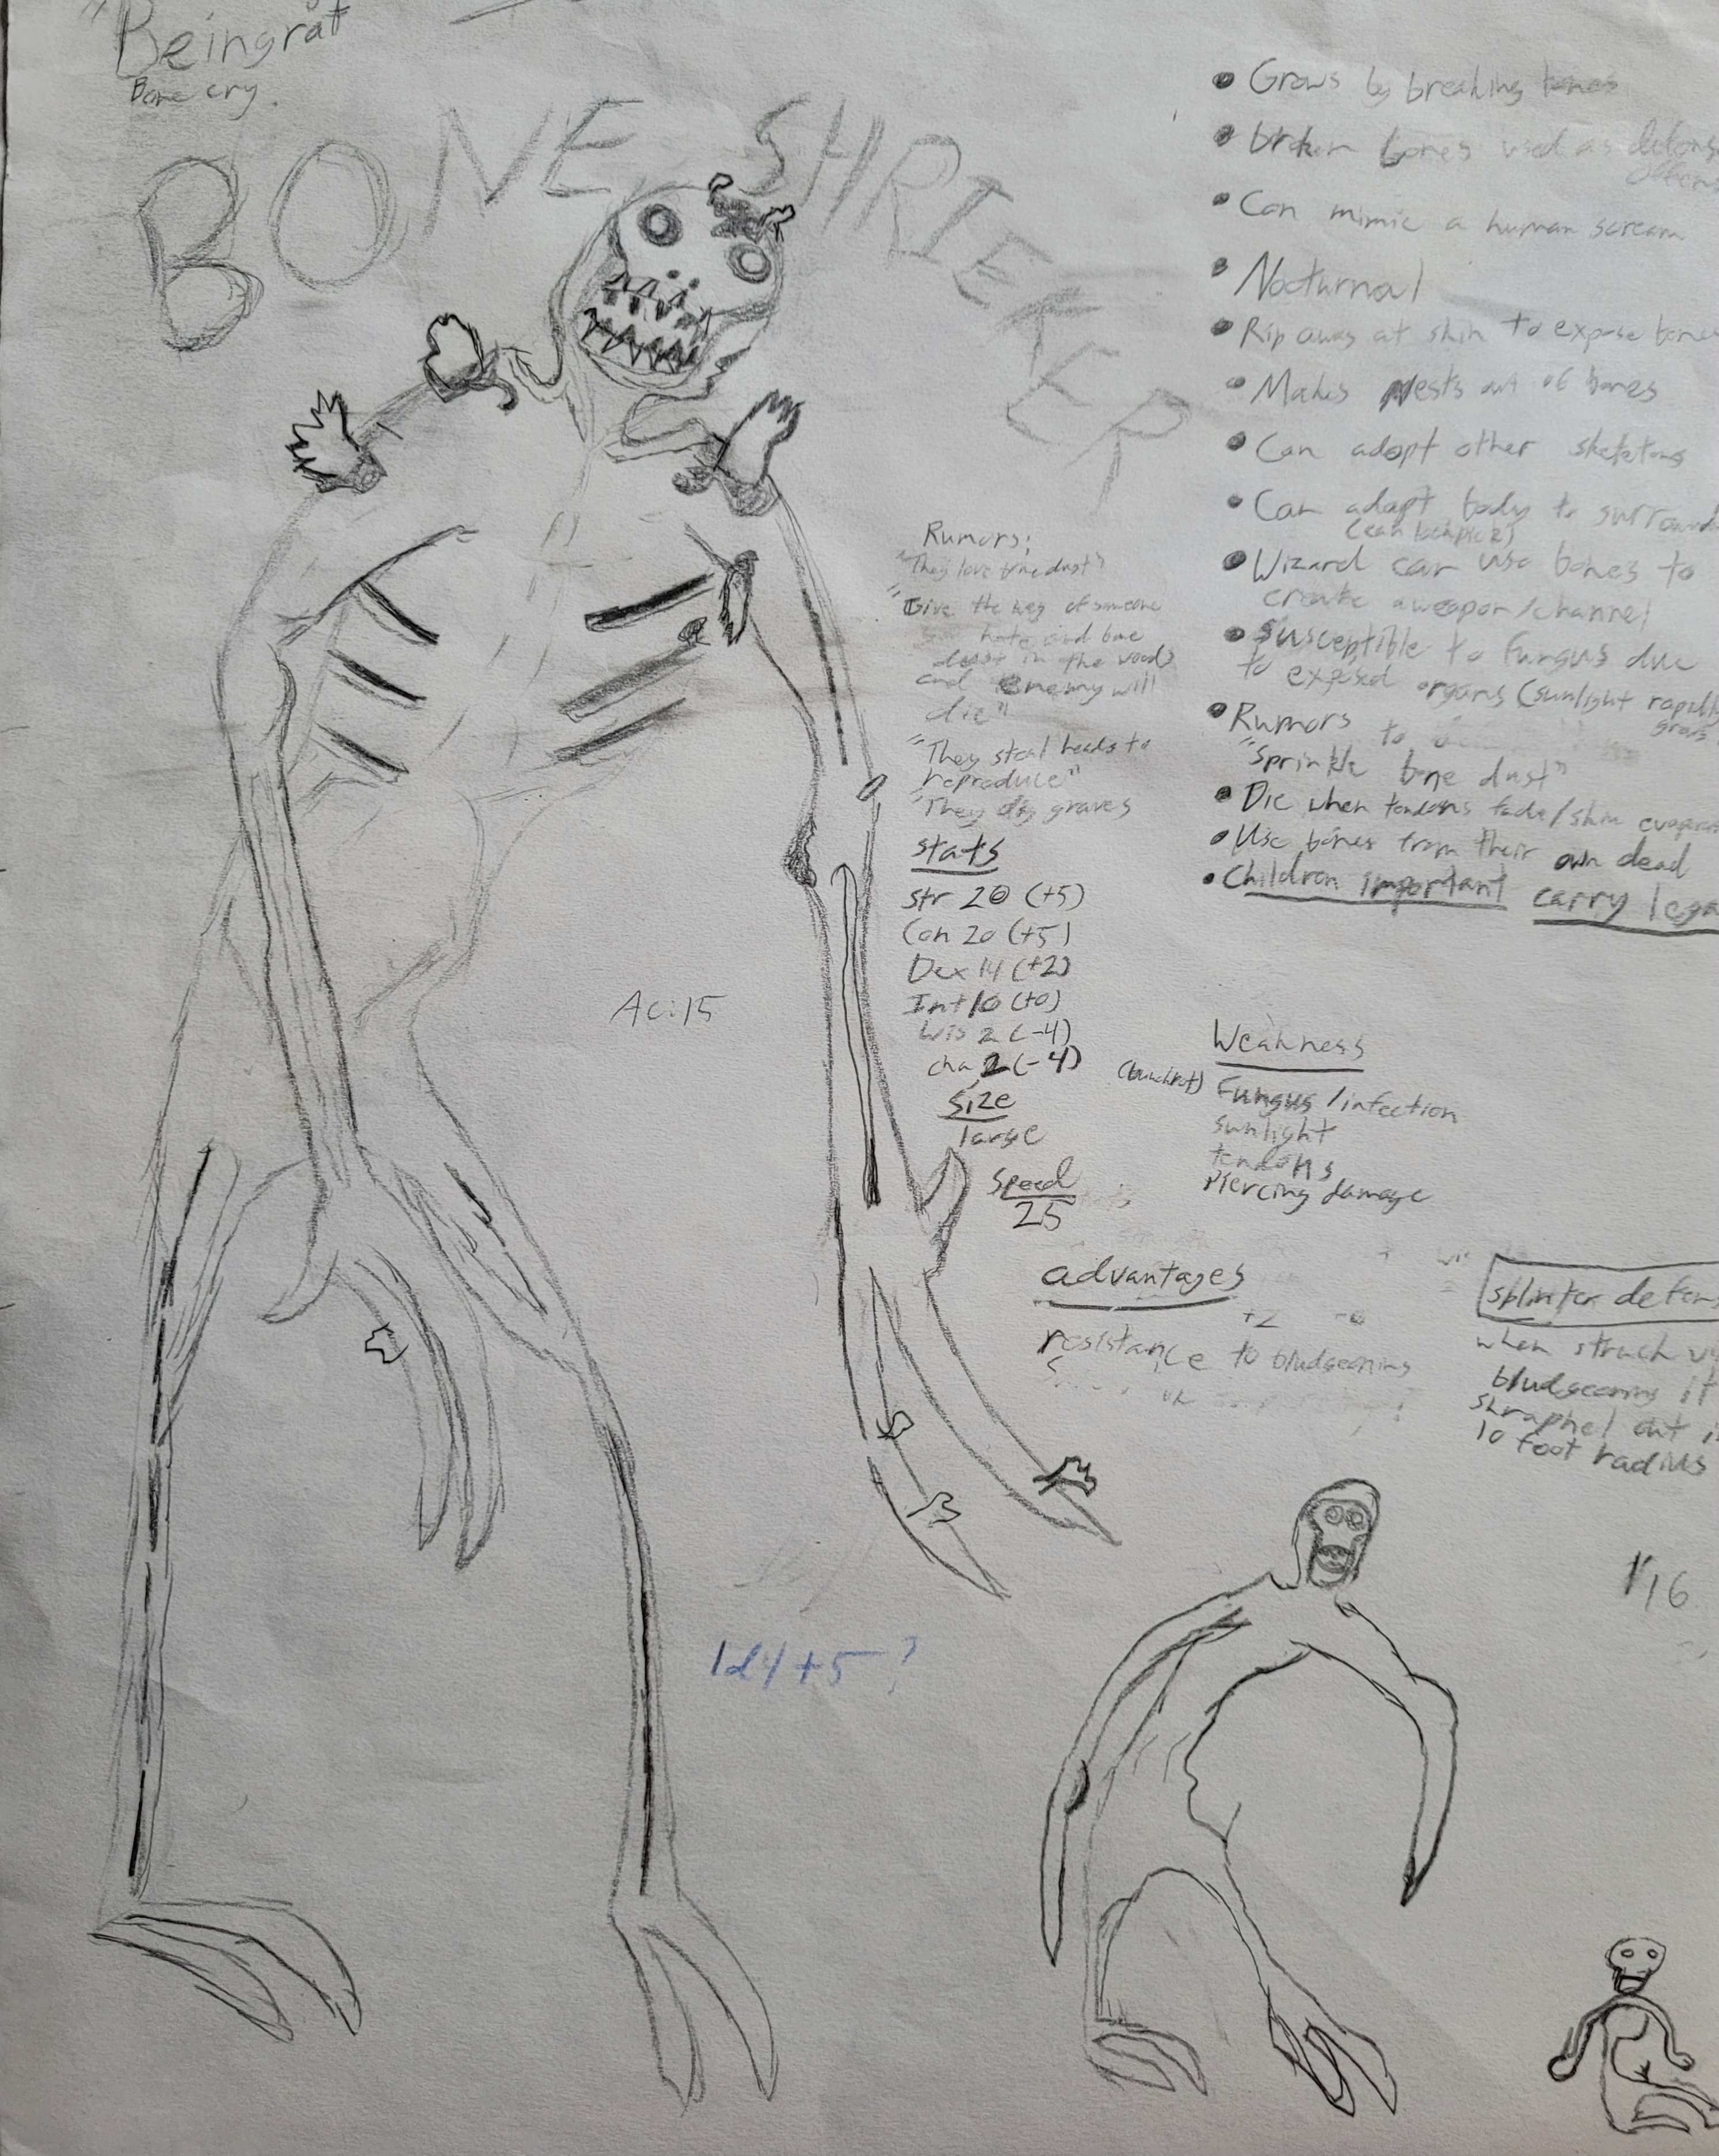 "Beingrát
Bone cry.
BONE SHRIEKER
• Grows by breaking bones
• broken bones used as defense
• Can mimic a human scream
• Nocturnal
• Rip away at skin to expose bones
• Makes Nests out of bones
• Can adopt other skeletons
• Can adapt body to
(can lockpick)
• Wizard can use bones to
create a weapon/channel
• Susceptible to fungus due
to exposed organs (sunlight rapidly
grows
• Rumors to
"Sprinkle bone dust"
• Die when tendons fade/skin
• Use bones from their own dead
• Children important carry
Rumors:
"They love bone dust"
"Give the of someone
hate and bone
dust in the woods
and enemy will
die"
"They steal heads to
reproduce"
"They dig graves
stats
str 20 (+5)
Con 20 (+5)
Dex 14 (+2)
Int 10 (+0)
Wis 2 (-4)
cha 2 (-4)
Size
large
Speed
25
Ac:15
Weakness
Fungus/infection
sunlight
tendons
Piercing damage
advantages
+2
resistance to bludgeoning
splinter
when struck
bludgeoning it
shraphel out
10 foot radius
1/16
1d4+5?